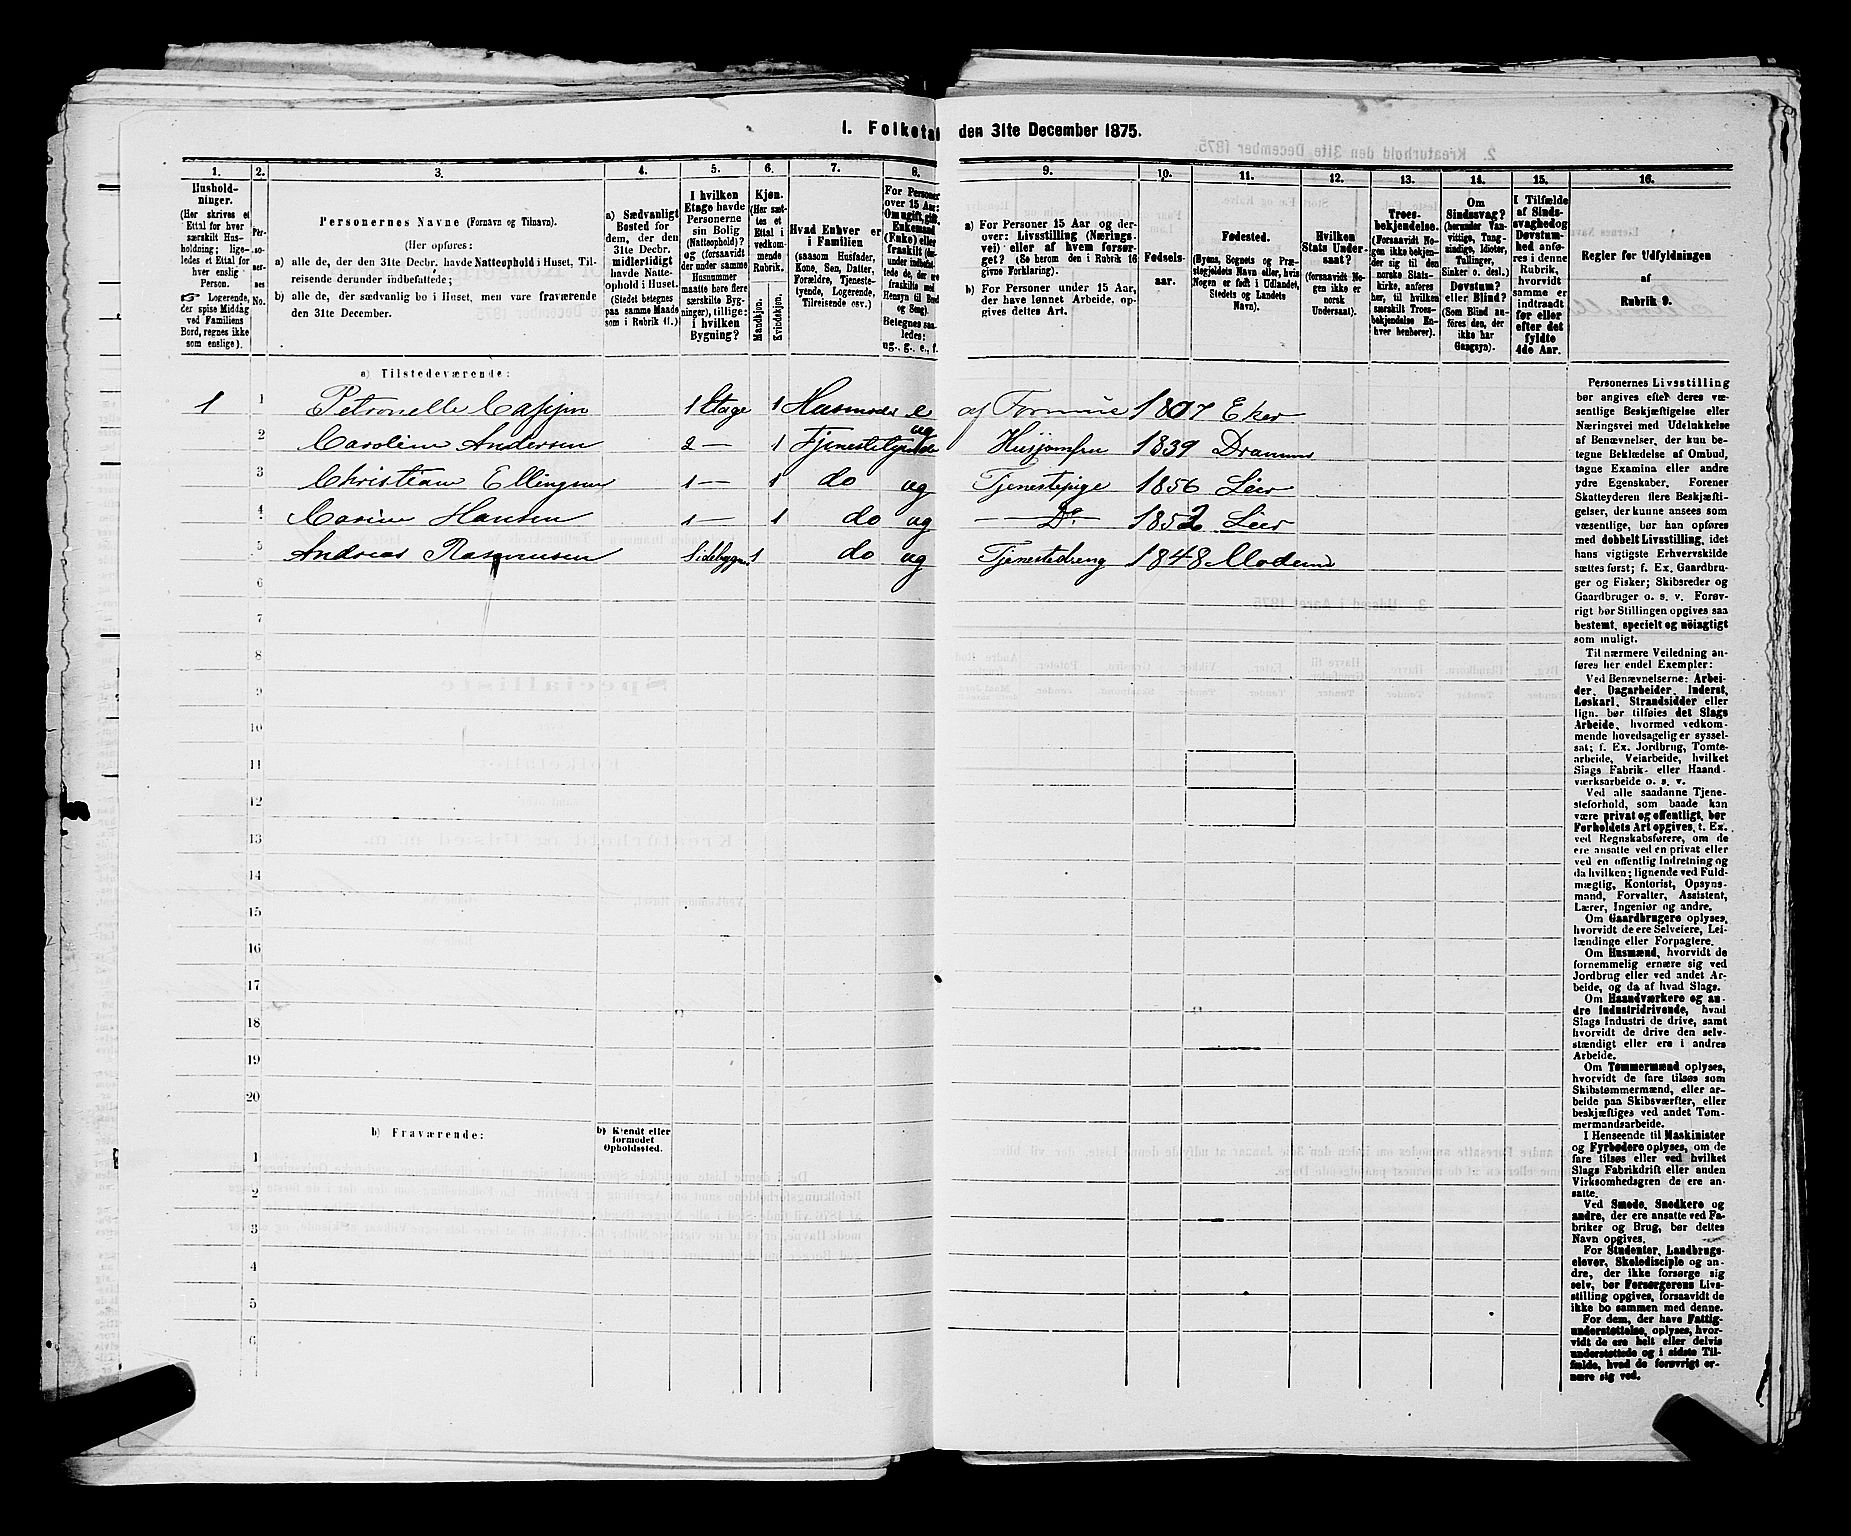 I. Folketal den 31te December 1875.
1. 2. 3. 4. 5. 6. 7. 8. 9. 10. 11. 12. 13. 14. 15. 16.
Hushold-
ninger.
(Her skrives et
Ettal for hver
særskilt Hus-
holdning; lige-
ledes et Ettal for
hver enslig
Person.
Logerende,
der spise Middag
ved Familiens
Bord, regnes ikke
som enslige).
Per-
so-
ner-
nes
No.
Personernes Navne (Fornavn og Tilnavn).
(Her opføres:
a) alle de, der den 31te Decbr. havde Natteophold i Huset, Til-
reisende derunder indbefattede;
b) alle de, der sædvanlig bo i Huset, men vare fraværende
den 31te December.
a) Sædvanligt
Bosted for
dem, der den
31te Decbr.
midlertidigt
havde Natte-
ophold i Huset.
(Stedet betegnes
paa samme Maade
som i Rubrik 11.)
I hvilken
Etage havde
Personerne
sin Bolig
(Natteophold)?
og (forsaavidt
der under samme
Husnummer
maatte høre flere
særskilte Byg-
ninger), tillige:
i hvilken
Bygning?
Kjøn.
(Her sæt-
tes et
Ettal i
vedkom-
mende
Rubrik.
Mandkjøn.
Kvindekjøn.
Hvad Enhver er
i Familien
(saasom Husfader,
Kone, Søn, Datter,
Forældre, Tjeneste-
tyende, Logerende,
Tilreisende osv.)
For Personer
over 15 Aar:
Om ugift, gift,
Enkemand
(Enke) eller
fraskilt (der-
under indbefat-
tede de, der ere
fraskilte med
Hensyn til Bord
og Seng).
Betegnes saa-
ledes:
ug., g., e., f.
a) For Personer 15 Aar og der-
over: Livsstilling (Nærings-
vei) eller af hvem forsør-
get? (Se herom den i Rubrik 16
givne Forklaring).
b) For Personer under 15 Aar,
der have lønnet Arbeide, op-
gives dettes Art.
Fødsels-
aar.
Fødested.
(Byens, Sognets og Præ-
stegjeldets Navn eller, hvis
Nogen er født i Udlandet,
Stedets og Landets
Navn).
Hvilken
Stats Under-
saat?
(forsaavidt No-
gen ikke er
norsk
Undersaat).
Troes-
bekjendelse.
(Forsaavidt No-
gen ikke bekjen-
der sig til den
norske Stats-
kirke, anføres
her, til hvilken
særskilt Troes-
bekjendelse En-
hver henhører).
Om
Sindssvag?
(herunder Van-
vittige, Tung-
sindige, Idioter,
Tullinger,
Sinker o. desl.)
Døvstum?
eller Blind?
(Som Blind an-
føres den, der
ikke har
Gangsyn).
I Tilfælde
af Sinds-
svaghed og
Døvstum-
hed anfø-
res i denne
Rubrik,
hvorvidt
samme er
indtraadt
før eller
efter det
fyldte
4de Aar.
Regler for Udfyldningen
af
Rubrik 9.
a) Tilstedeværende:
1 1 Petronelle 1 Etage 1 Husmoder e af Formue 1807 Eker
2 Caroline Andersen 2 — 1 Tjenestetyende ug Husjomfru 1839
3 Christiane Ellingsen 1 — 1 do ug Tjenestepige 1856 Lier
4 Hansen 1 — 1 do ug — Do — 1852 Lier
5 Andreas Rasmussen Sidebygn 1 do ug Tjenestedreng 1848 Modum
6
7
8
9
10
11
12
13
14
15
16
17
18
19
20
b) Fraværende:
b) Kjendt eller
formodet
Opholdssted.
1
2
3
4
5
6
Personernes Livsstilling
bør angives efter deres væ-
sentlige Beskjæftigelse eller
Næringsvei med Udelukkelse
af Benævnelser, der kun be-
tegne Beklædelse af Ombud,
tagne Examina eller andre
ydre Egenskaber. Forener
Skatteyderen flere Beskjæfti-
gelser, der kunne ansees som
væsentlige, bør han opføres
med dobbelt Livsstilling, idet
hans vigtigste Erhvervskilde
sættes først; f. Ex. Gaardbru-
ger og Fisker; Skibsreder og
Gaardbruger o. s. v. Forøv-
rigt bør Stillingen opgives saa
bestemt, specielt og nöiagtigt
som muligt.
Til nærmere Veiledning an-
føres her endel Exempler:
Ved Benævnelserne: Arbei-
der, Dagarbeider, Inderst,
Løskarl, Strandsidder eller
lign. bør tilføies det Slags
Arbeide, hvormed vedkom-
mende hovedsagelig er syssel-
sat; f. Ex. Jordbrug, Tomte-
arbeide, Veiarbeide, hvilket
Slags Fabrik- eller Haand-
værksarbeide o. s. v.
Ved alle saadanne Tjene-
steforhold, som baade kan
være privat og offentligt, bør
Forholdets Art opgives, t. Ex.
ved Regnskabsførere, om de
ere ansatte ved en privat eller
ved en offentlig Indretning og
da hvilken; lignende ved Fuld-
mægtig, Kontorist, Opsyns-
mand, Forvalter, Assistent,
Lærer, Ingeniør og andre.
Om Gaardbrugere oplyses,
hvorvidt de ere Selveiere, Lei-
lændinge eller Forpagtere.
Om Husmænd, hvorvidt de
fornemmelig ernære sig ved
Jordbrug eller ved andet Ar-
beide, og da af hvad Slags.
Om Haandværkere og an-
dre Industridrivende, hvad
Slags Industri de drive, samt
hvorvidt de drive den selv-
stændigt eller ere i andres
Arbeide.
Om Tømmermænd oplyses,
hvorvidt de fare tilsøs som
Skibstømmermænd, eller ar-
beide paa Skibsværfter, eller
beskjæftiges ved andet Tøm-
mermandsarbeide.
I Henseende til Maskinister
og Fyrbødere oplyses, om de
fare tilsøs eller ved hvilket
Slags Fabrikdrift eller anden
Virksomhedsgren de ere an-
satte.
Ved Smede, Snedkere og
andre, der ere ansatte ved Fa-
briker og Brug, bør dettes
Navn opgives.
For Studenter, Landbrugs-
elever, Skoledisciple og an-
dre, der ikke forsørge sig
selv, bør Forsørgerens Livs-
stilling opgives, forsaavidt de
ikke bo sammen med denne.
For dem, der have Fattig-
understøttelse, oplyses, hvor-
vidt de ere helt eller delvis
understøttede og i sidste Til-
fælde, hvad de forøvrigt er-
nære sig ved.